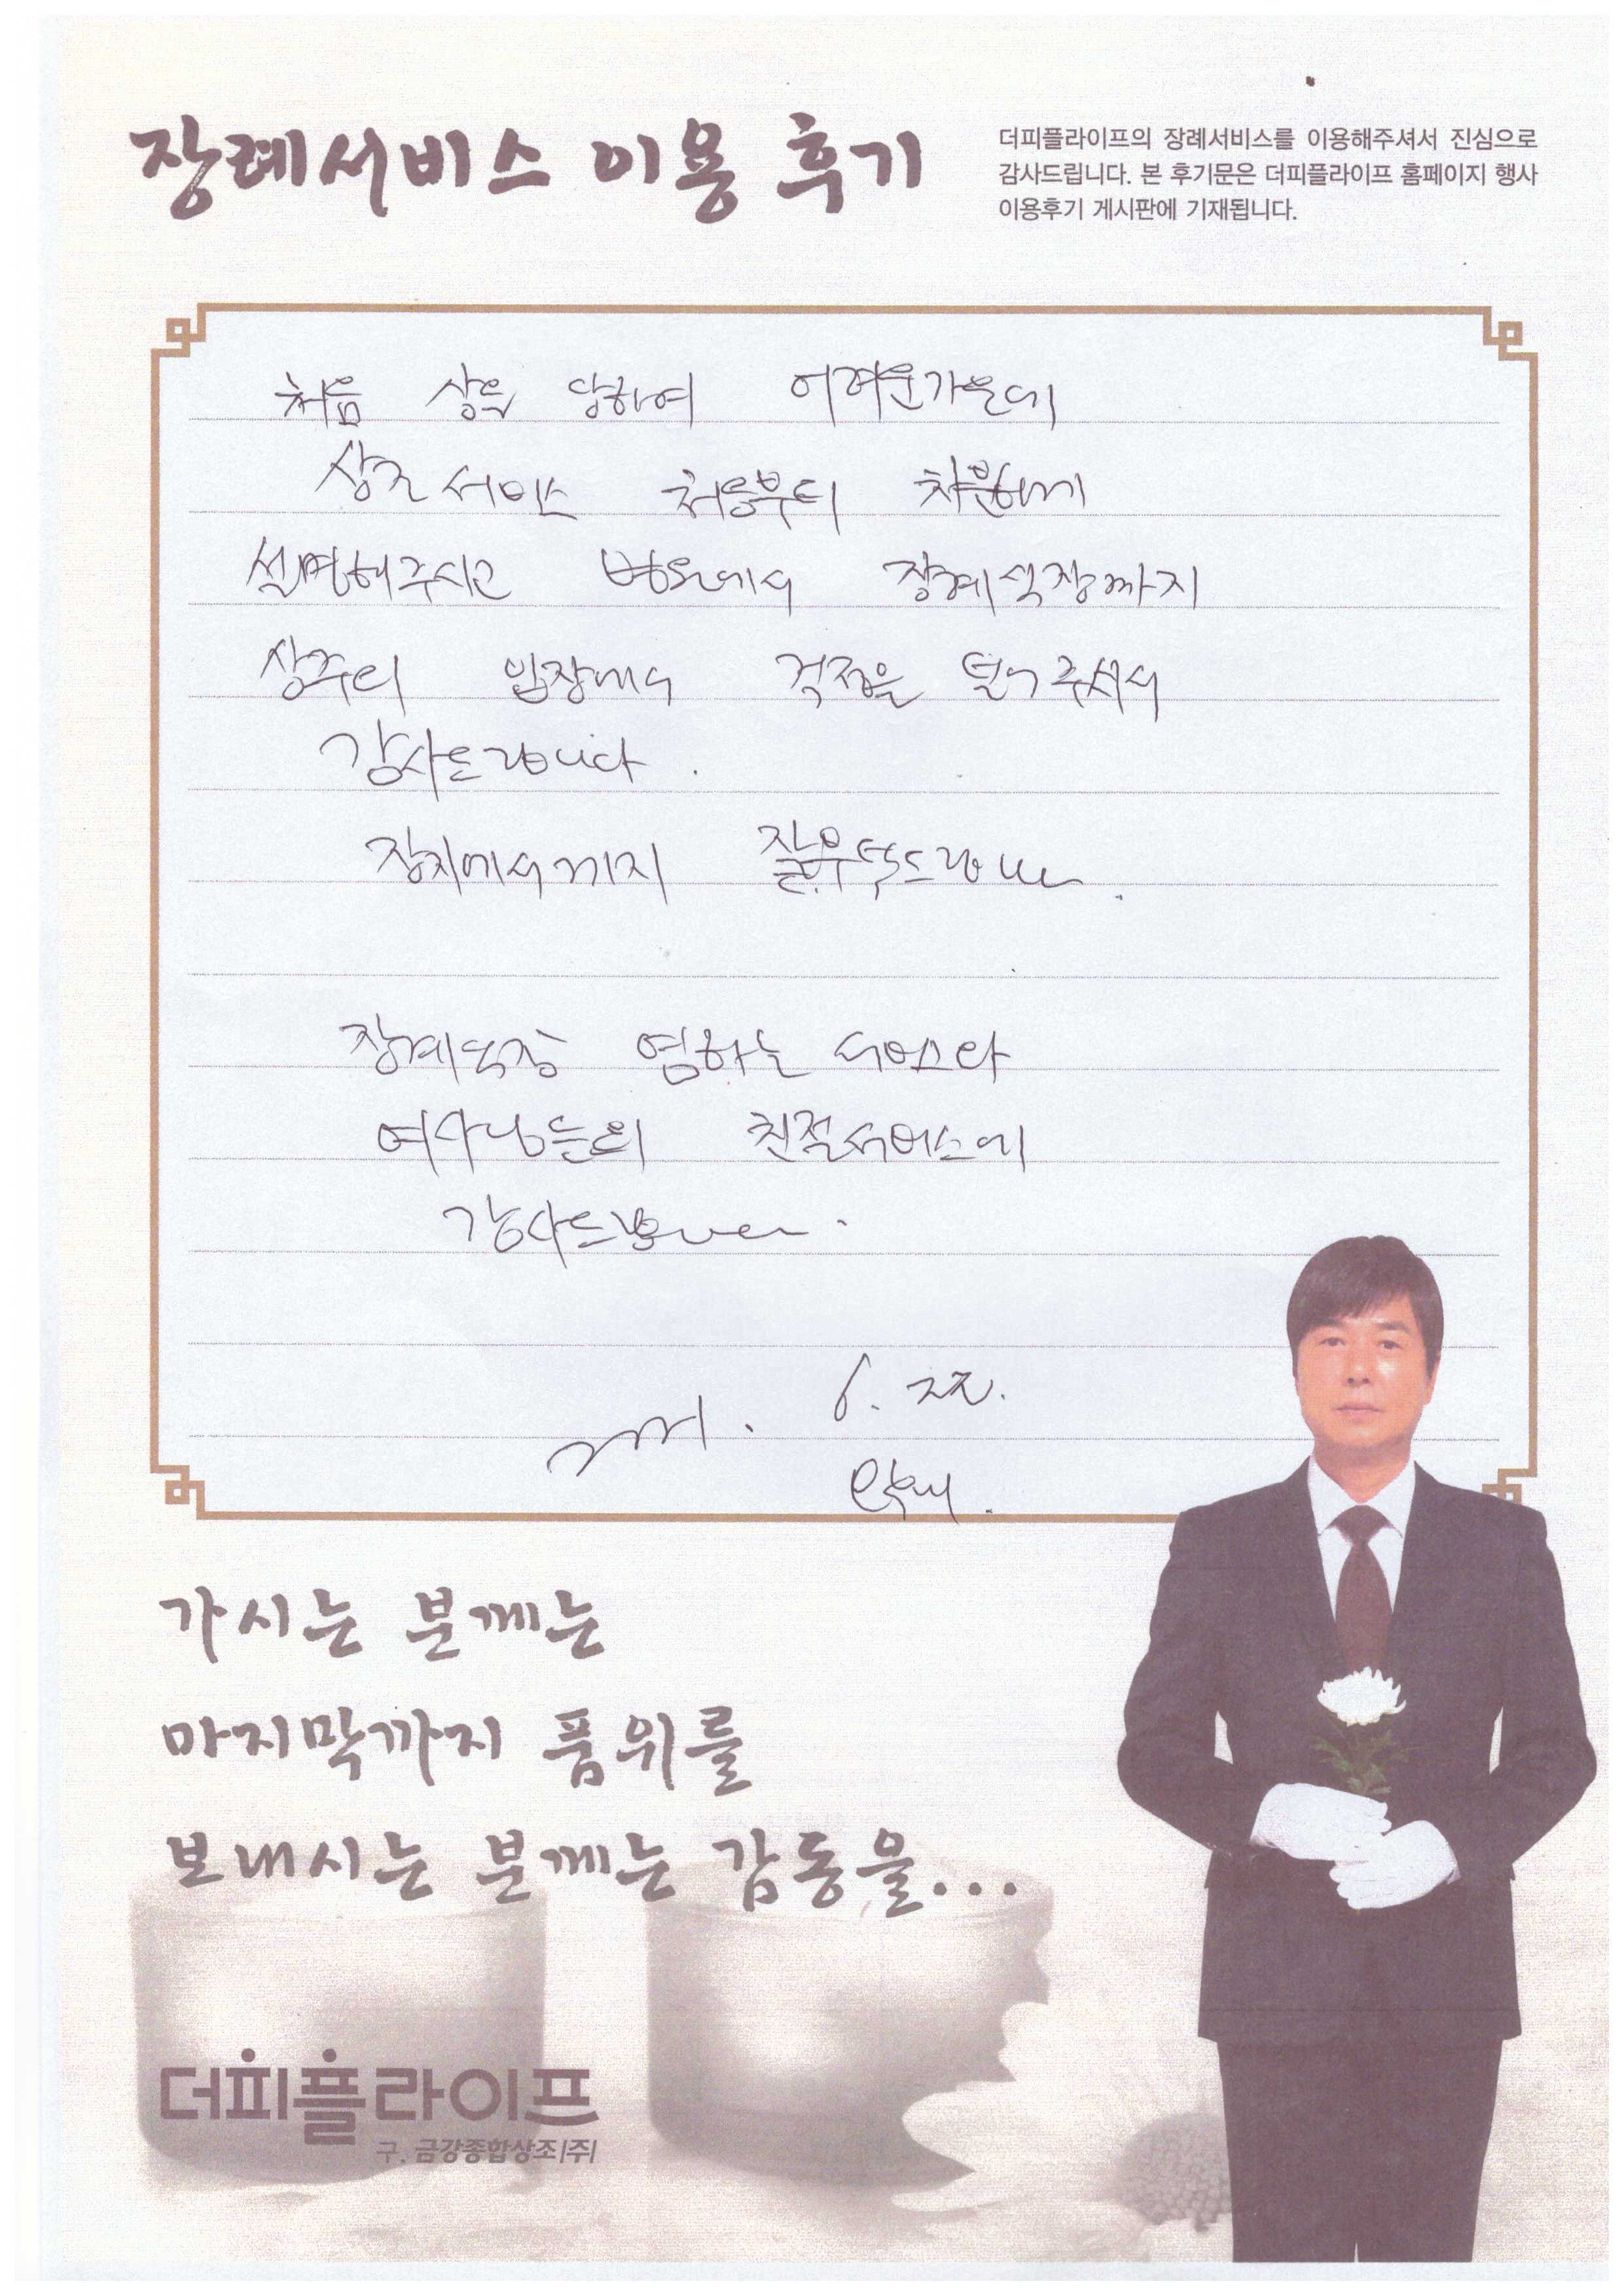 장례서비스 이용 후기
더피플라이프의 장례서비스를 이용해주셔서 진심으로
감사드립니다. 본 후기문은 더피플라이프 홈페이지 행사
이용후기 게시판에 기재됩니다.
처음 상을 당하여 어려운가운데
상조 서비스 처음부터 차분하게
설명해주시고 병원에서 장례식장까지
상주의 입장에서 걱정을 덜어주셔서
감사드립니다.
장지에서까지 잘 부탁드립니다.
장례식장 염하는 서비스와
여사님들의 친절서비스에
감사드립니다.
6. 22.
가시는 분께는
마지막까지 품위를
보내시는 분께는 감동을...
더피플라이프
구. 금강종합상조(주)